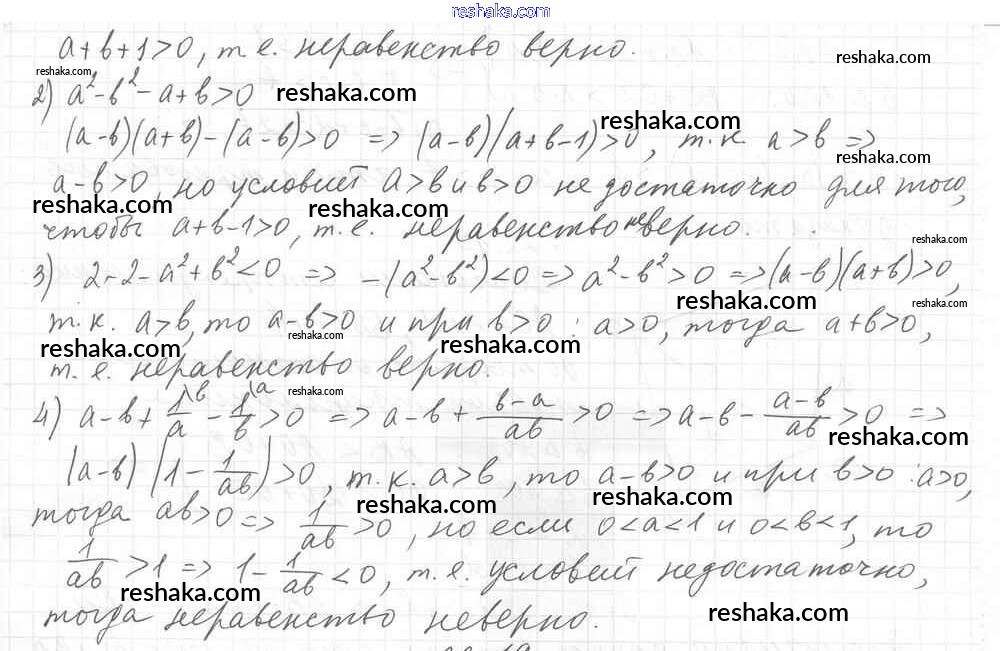 reshaka.com
a+b+1>0, т.е. неравенство верно.
reshaka.com
reshaka.com
2) a²-b²-a+b>0
reshaka.com
(a-b)(a+b)-(a-b)>0 => (a-b)(a+b-1)>0, т.к. a>b =>
reshaka.com
reshaka.com
a-b>0, но условий a>b и b>0 не достаточно для того,
reshaka.com
reshaka.com
чтобы a+b-1>0, т.е. неравенство неверно.
reshaka.com
3) 2-2-a²+b²<0 => -(a²-b²)<0 => a²-b²>0 => (a-b)(a+b)>0,
reshaka.com
reshaka.com
т.к. a>b, то a-b>0 и при b>0: a>0, тогда a+b>0,
reshaka.com
reshaka.com
reshaka.com
т.е. неравенство верно.
4) a-b+1\b/a-1\a/b>0 => a-b+(b-a)/ab>0 => a-b-(a-b)/ab>0 =>
reshaka.com
reshaka.com
(a-b)(1-1/ab)>0, т.к. a>b, то a-b>0 и при b>0: a>0,
reshaka.com
reshaka.com
тогда ab>0 => 1/ab>0, но если 0<a<1 и 0<b<1, то
1/ab>1 => 1-1/ab<0, т.е. условий недостаточно,
reshaka.com
reshaka.com
тогда неравенство неверно.